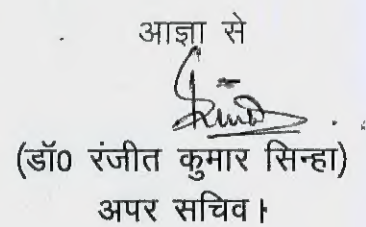 आज्ञा से
(डॉ0 रंजीत कुमार सिन्हा)
अपर सचिव।